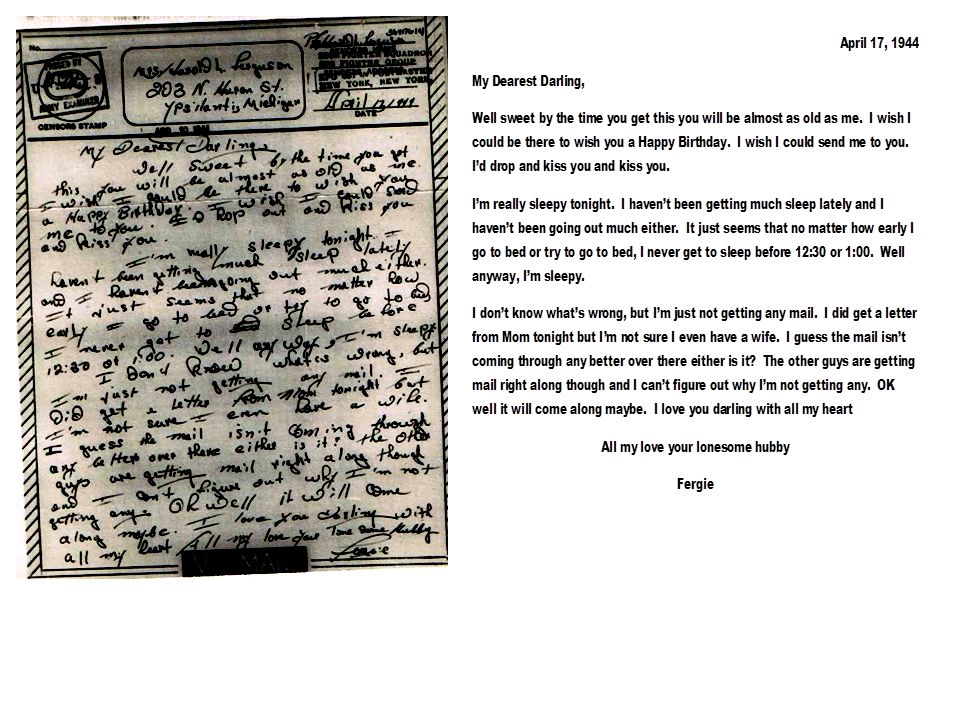 No.
CENSORS STAMP
Mrs Harold L. Ferguson
203 N. Huron St.
Ypsilanti Michigan
FIGHTER SQUADRON
FIGHTER GROUP
NEW YORK, NEW YORK
April 17, 1944
DATE
My Dearest Darling,
Well sweet by the time you get
this you will be almost as old as me.
I wish I could be there to wish you
a Happy Birthday. I wish I could send
me to you. I'd Drop out and Kiss you
and Kiss you.
I'm really sleepy tonight. I
haven't been getting much sleep lately
and I haven't been going out much either.
It just seems that no matter how
early I go to bed or try to go to bed
I never get to sleep before
12:30 or 1:00. Well any way I'm sleepy
I don't know what's wrong, but
I'm just not getting any mail. I
Did get a letter from Mom tonight but
I'm not sure I even have a wife.
I guess the mail isn't coming through
any better over there either is it? The other
guys are getting mail right along though
and I can't figure out why I'm not
getting any. OK well it will come
along maybe. I love you darling with
all my heart All my love your lonesome hubby
Fergie
V-MAIL
April 17, 1944
My Dearest Darling,
Well sweet by the time you get this you will be almost as old as me.  I wish I
could be there to wish you a Happy Birthday.  I wish I could send me to you.
I'd drop and kiss you and kiss you.
I'm really sleepy tonight.  I haven't been getting much sleep lately and I
haven't been going out much either.  It just seems that no matter how early I
go to bed or try to go to bed, I never get to sleep before 12:30 or 1:00.  Well
anyway, I'm sleepy.
I don't know what's wrong, but I'm just not getting any mail.  I did get a letter
from Mom tonight but I'm not sure I even have a wife.  I guess the mail isn't
coming through any better over there either is it?  The other guys are getting
mail right along though and I can't figure out why I'm not getting any.  OK
well it will come along maybe.  I love you darling with all my heart
All my love your lonesome hubby
Fergie